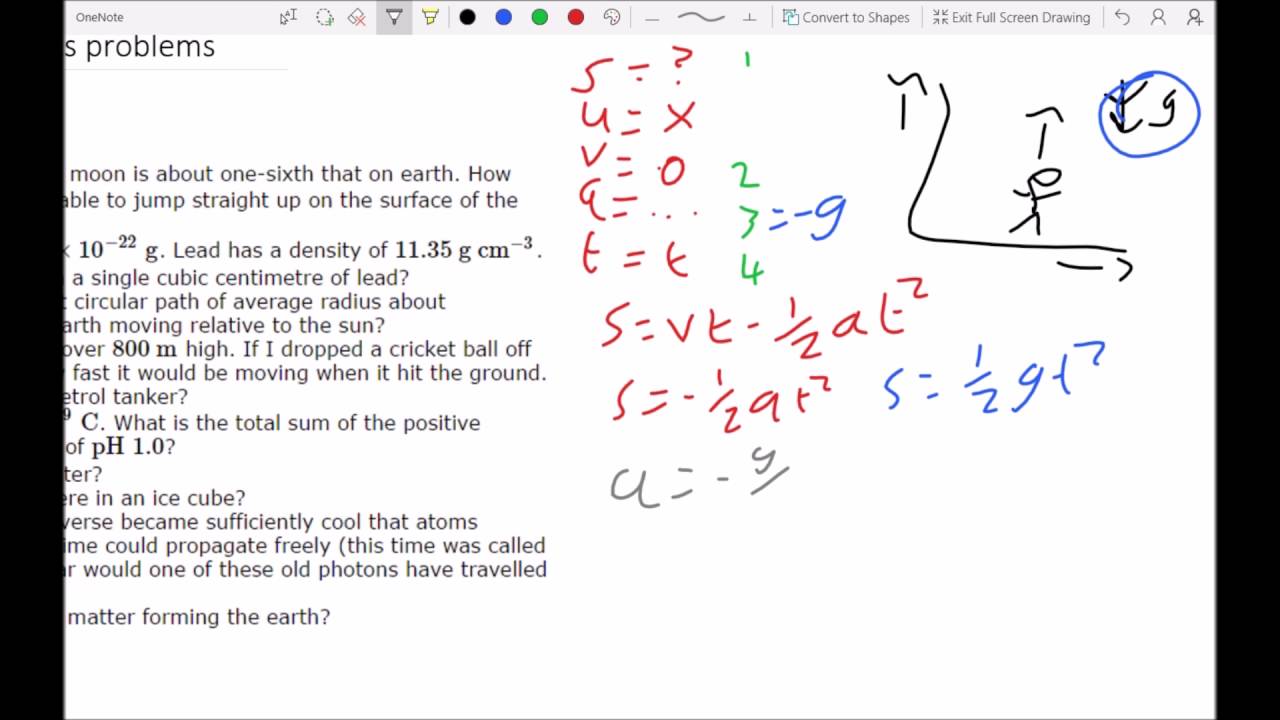 OneNote
Convert to Shapes
Exit Full Screen Drawing
s problems
moon is about one-sixth that on earth. How
able to jump straight up on the surface of the
10⁻²² g. Lead has a density of 11.35 g cm⁻³.
a single cubic centimetre of lead?
circular path of average radius about
arth moving relative to the sun?
over 800 m high. If I dropped a cricket ball off
fast it would be moving when it hit the ground.
etrol tanker?
⁹ C. What is the total sum of the positive
of pH 1.0?
ter?
ere in an ice cube?
verse became sufficiently cool that atoms
ime could propagate freely (this time was called
ar would one of these old photons have travelled
matter forming the earth?
s = ? 1
u = x
v = 0 2
a = ... 3 = -g
t = t 4
g
s = vt - 1/2 at²
s = -1/2 at² s = 1/2 gt²
a = - g/